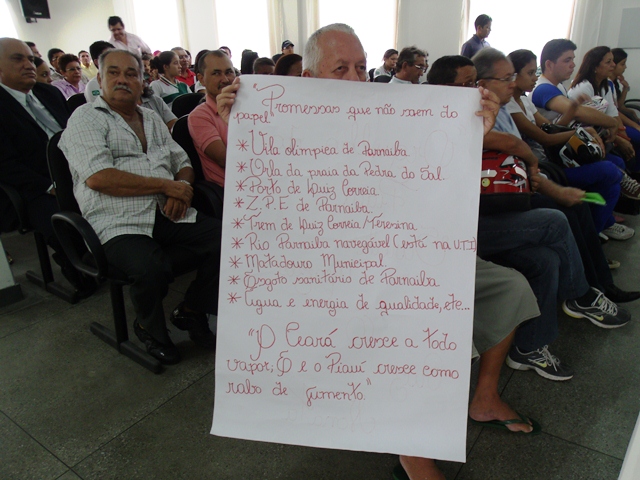 "Promessas que não saem do
papel"
* Vila olimpica de Parnaiba
* Orla da praia da Pedra do Sal.
* Porto de Luiz Correia
* Z.P.E de Parnaiba
* Trem de Luiz Correia/Teresina
* Rio Parnaiba navegável (está na UTI)
* Matadouro Municipal
* Esgoto sanitário de Parnaiba
* Água e energia de qualidade, etc...
"O Ceará cresce a todo
vapor, e o Piauí cresce como
rabo de jumento."